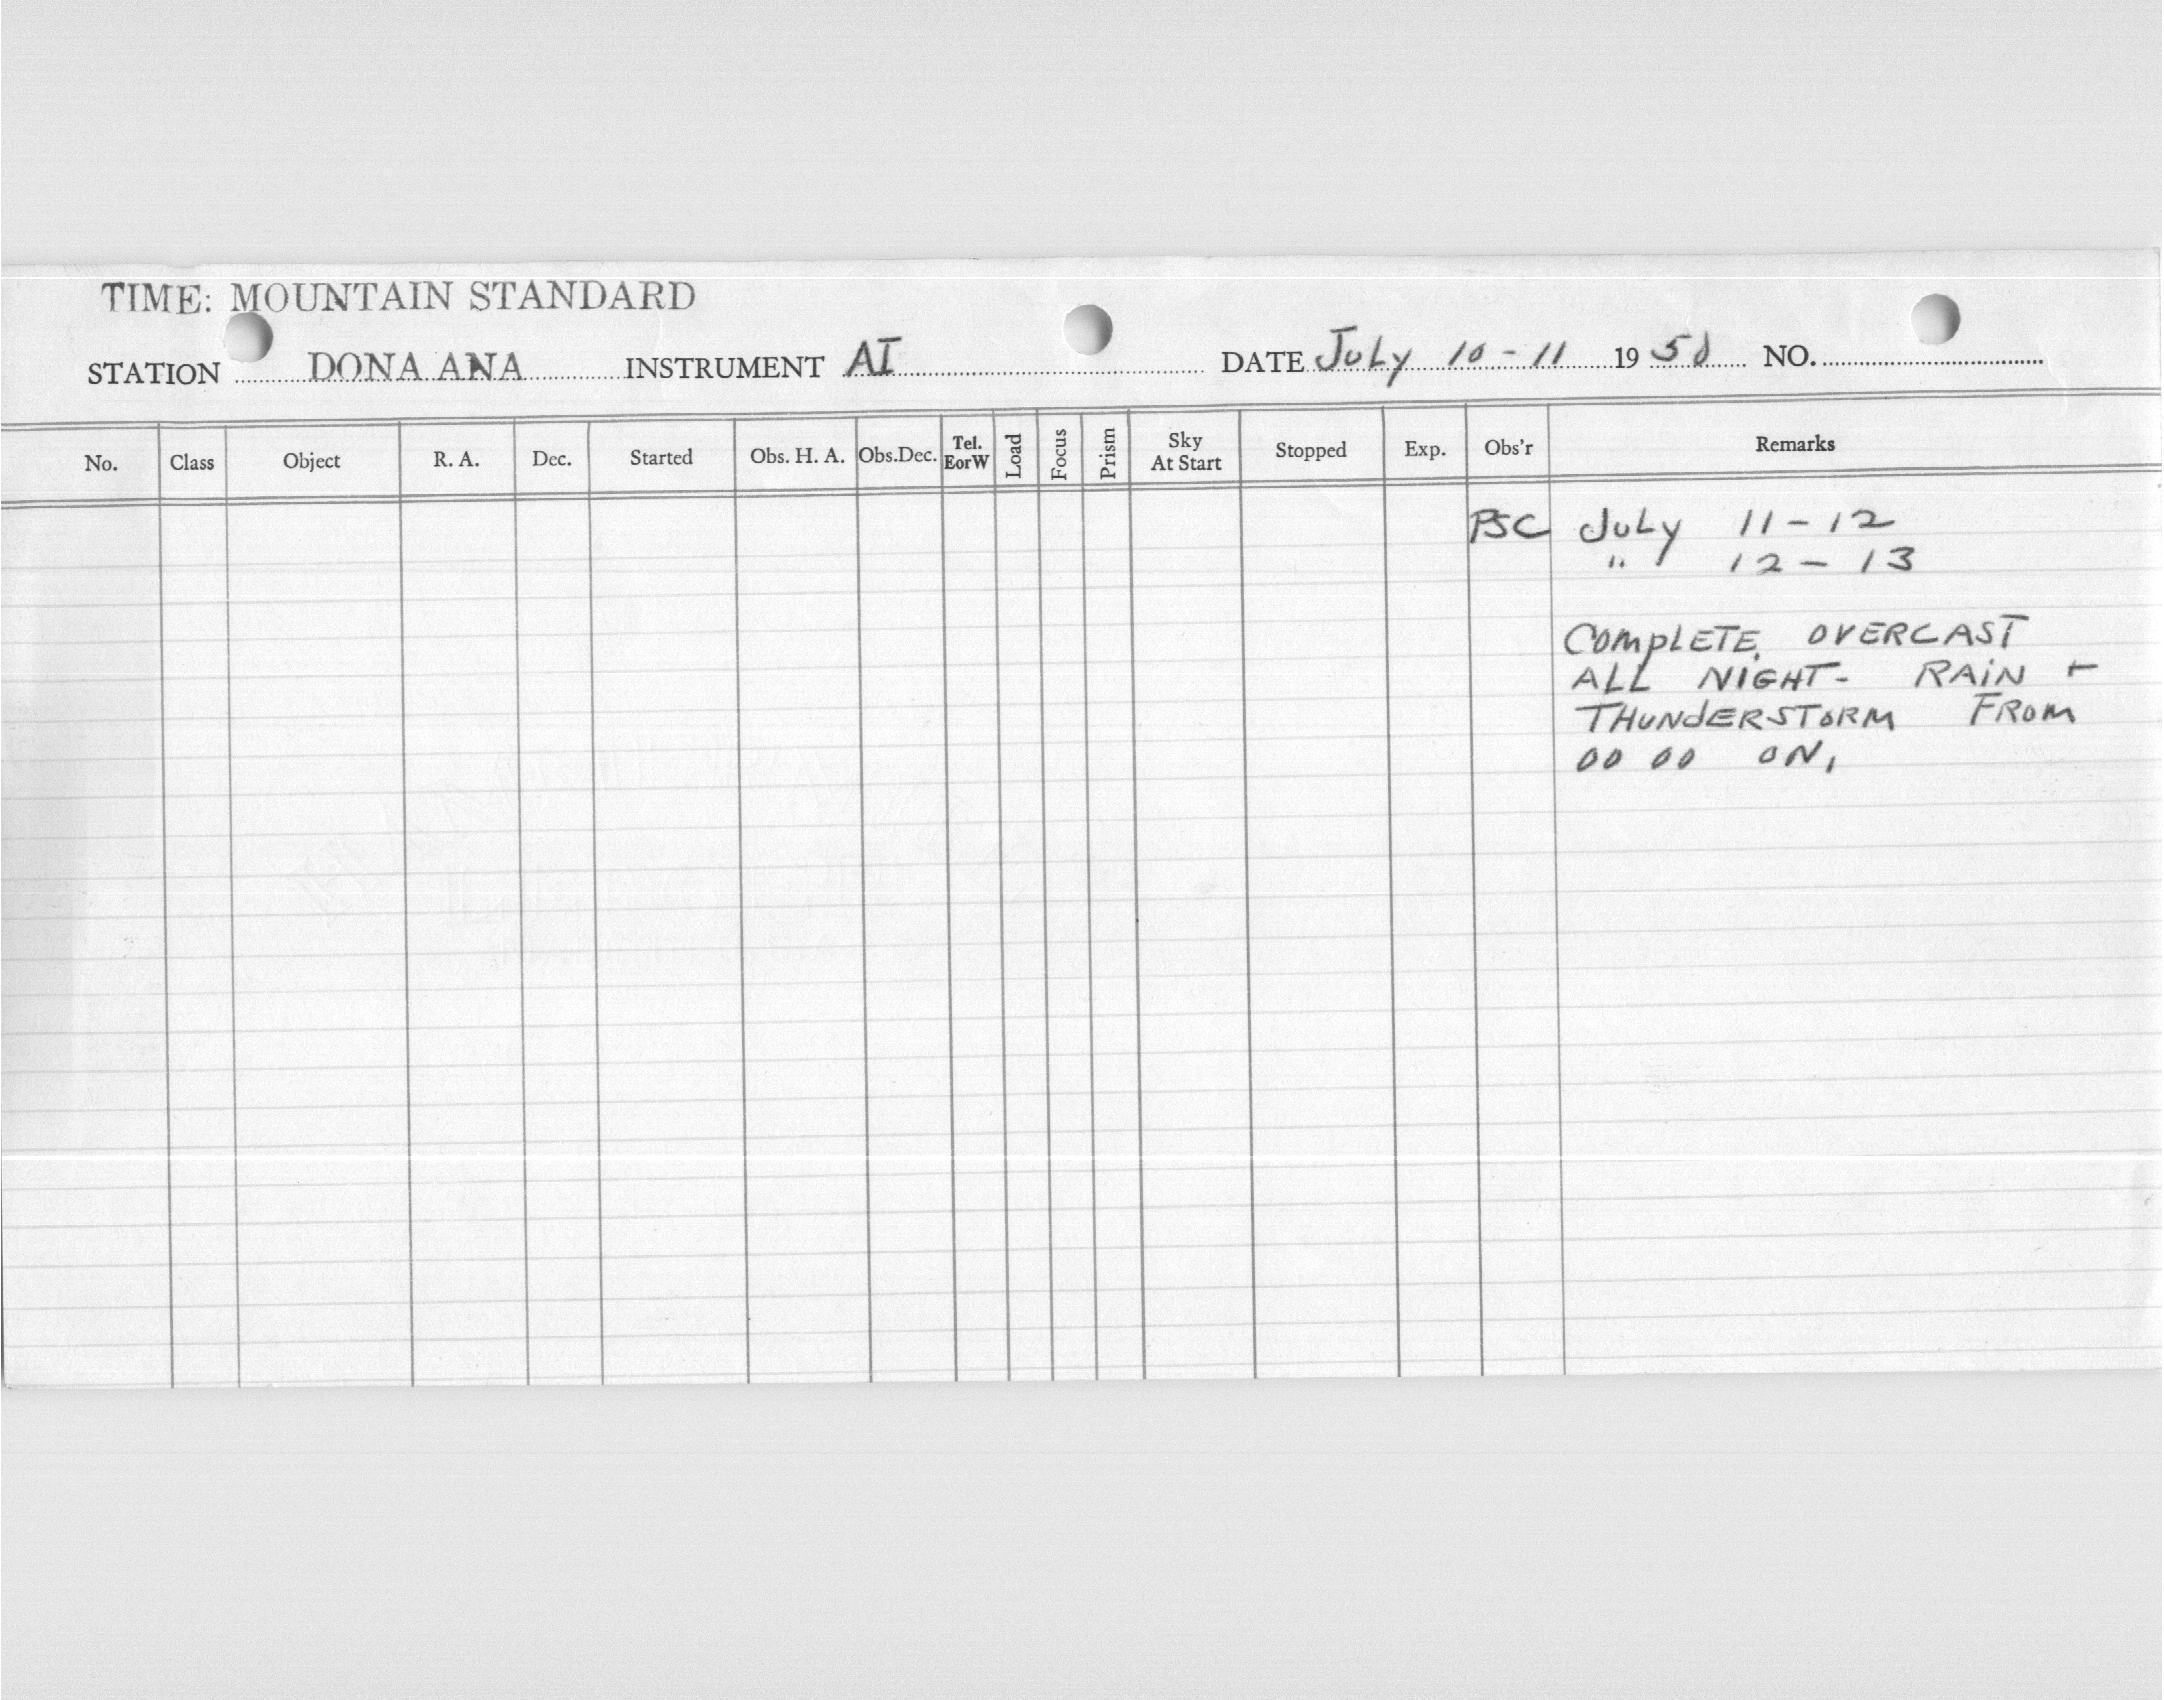 TIME: MOUNTAIN STANDARD
STATION DONA ANA INSTRUMENT AI DATE July 10-11 1950 NO.
No. Class Object R. A. Dec. Started Obs. H. A. Obs.Dec. Tel. EorW Load Focus Prism Sky At Start Stopped Exp. Obs'r Remarks
PSC July 11-12
" 12-13
COMPLETE OVERCAST
ALL NIGHT- RAIN +
THUNDERSTORM FROM
00 00 ON.